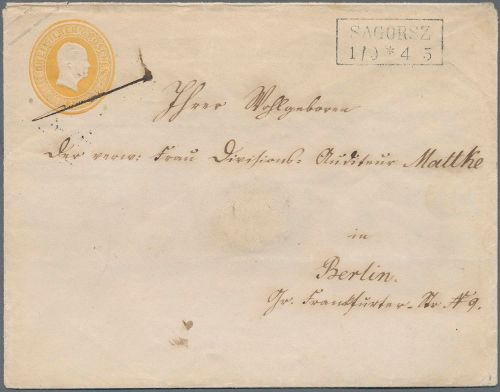 SAGORSZ
1/9 * 4 5
Ihrer Wohlgeboren
Der verw: Frau Divisions-Auditeur Mattke
in
Berlin.
Gr. Frankfurter-Str № 9.